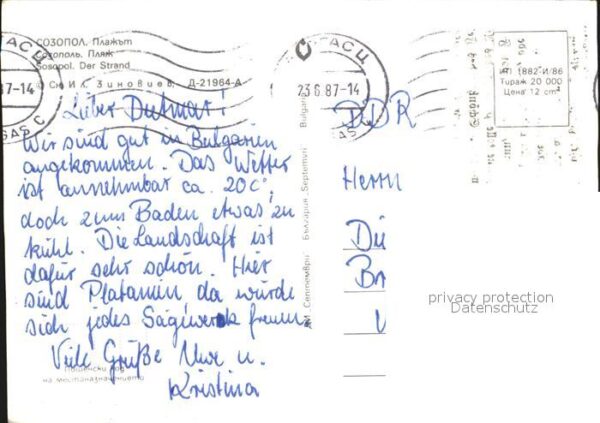 СОЗОПОЛ. Плажът
Созополь. Пляж
Sosopol. Der Strand
© Сн. Ил. Зиновиев, Д-21964-А
23.6.87-14
7-14
ИП 1882-И/86
Тираж 20 000
Цена 12 cm
Lieber Dietmar!
Wir sind gut in Bulgarien
angekommen. Das Wetter
ist annehmbar ca. 20 C°,
doch zum Baden etwas zu
kühl. Die Landschaft ist
dafür sehr schön. Hier
sind Platanen, da würde
sich jedes Sägewerk freuen.
Viele Grüße Uwe u.
Kristina
Пощенски код
на местоназначението
България „Септември"
DDR
Herrn
Di
Br
privacy protection
Datenschutz